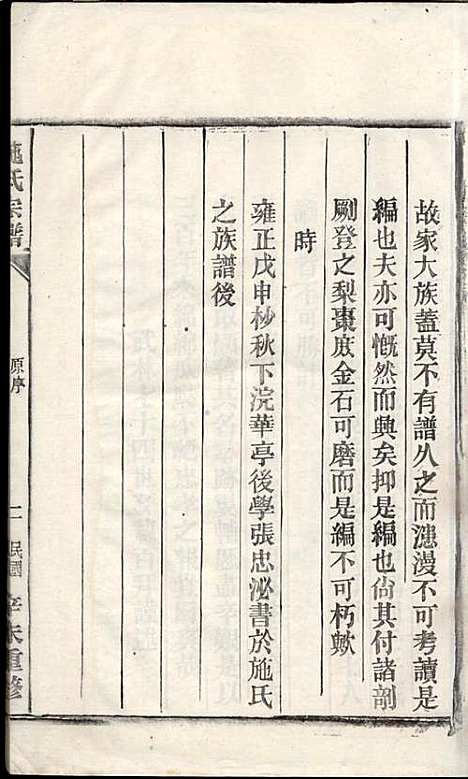 故家大族蓋莫不有譜久之而漶漫不可考讀是
編也夫亦可慨然而興矣抑是編也尙其付諸剞
劂登之梨棗庻金石可磨而是編不可朽歟
時
雍正戊申杪秋下浣華亭後學張忠泌書於施氏
之族譜後
施氏宗譜
原序
二
民國
辛未重修